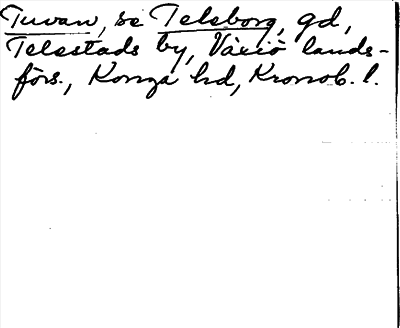 Tuvan, se Telsborg, gd,
Telestads by, Växiö lands-
förs., Konga hd, Kronob. l.